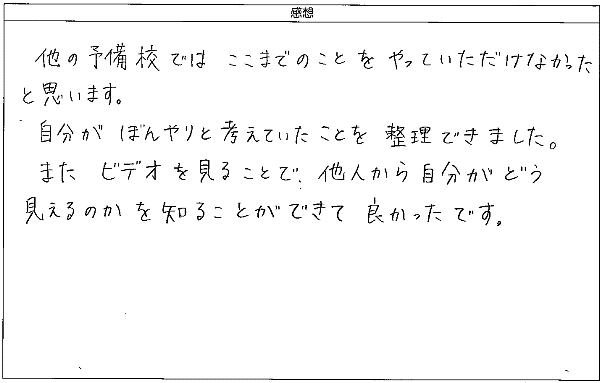 感想
他の予備校では ここまでのことを やっていただけなかった
と思います。
自分が ぼんやりと考えていたことを 整理できました。
また ビデオを見ることで、他人から自分がどう
見えるのかを知ることができて 良かったです。